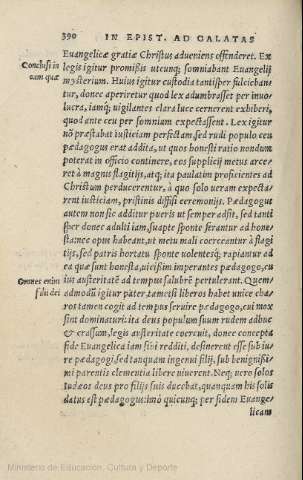 390 IN EPIST. AD GALATAS
Euangelicæ gratiæ Christus adueniens offenderet. Ex
Conclusi in
eam quæ
legis igitur promißis utcunq; somniabant Euangelij
mysterium. Huius igitur custodia tantisper fulcieban
tur, donec aperiretur quod lex adumbrasset per inuo-
lucra, iamq; uigilantes clara luce cernerent exhiberi,
quod ante ceu per somnium expectassent. Lex igitur
nō præstabat iusticiam perfectam, sed rudi populo, ceu
pædagogus erat addita, ut quos honesti ratio nondum
poterat in officio continere, eos supplicij metus arce-
ret à magnis flagitijs, atq; ita paulatim proficientes ad
Christum perducerentur, à quo solo ueram expecta-
rent iusticiam, pristinis diffisi ceremonijs. Pædagogus
autem non sic additur pueris ut semper adsit, sed tanti
sper donec adulti iam, suapte sponte ferantur ad hone
sta: nec opus habeant, ut metu mali coerceantur à flagi
tijs, sed patris hortatu sponte uolentesq; rapiantur ad
Omnes enim
filij dei
ea quæ sunt honesta, uicißim imperantes pædagogo, cu
ius austeritatē ad tempus salubrē pertulerant. Quem/
admodū igitur pater, tametsi liberos habet unice cha-
ros tamen cogit ad tempus seruire pædagogo, cui mox
sint dominaturi: ita deus populum suum rudem adhuc
& crassum, legis austeritate coercuit, donec concepta
fide Euangelica iam sibi redditi, desinerent esse sub iu-
re pædagogi, sed tanquam ingenui filij, sub benignißi-
mi parentis clementia libere uiuerent. Neq; uero solos
Iudæos deus pro filijs suis ducebat, quanquam his solis
datus est pædagogus: imò quicunq; per fidem Euange-
licam
Ministerio de Educación, Cultura y Deporte